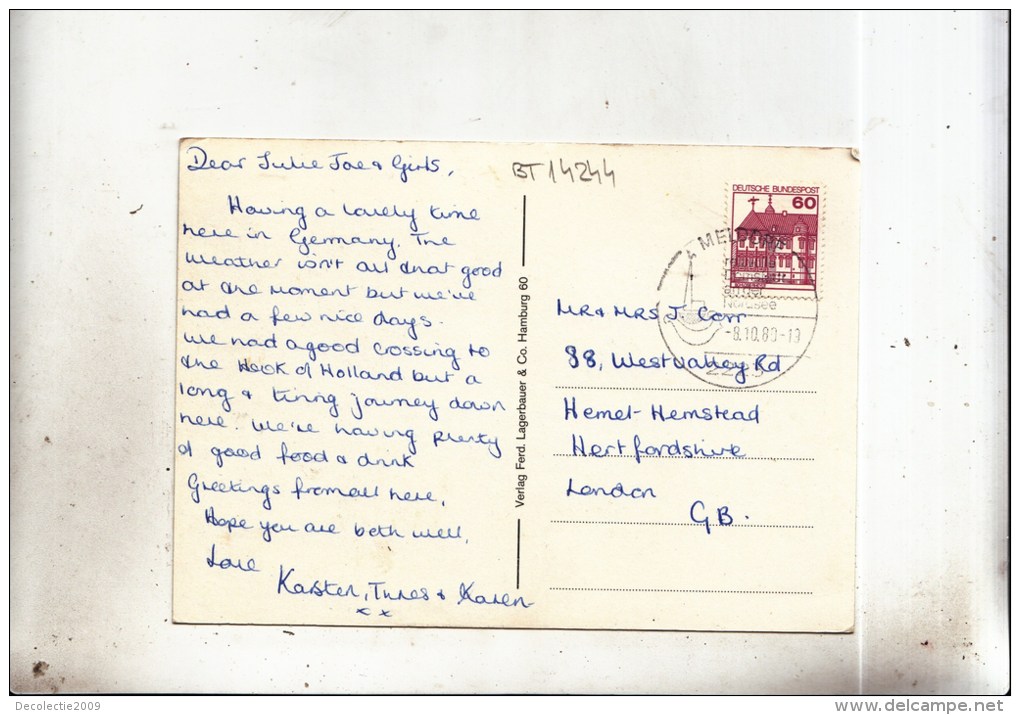 Dear Julie Joe & Girls,
Having a lovely time
here in Germany. The
weather isn't all that good
at the moment but we've
had a few nice days.
We had a good crossing to
the Hook of Holland but a
long & tiring journey down
here. We're having plenty
of good food & drink
Greetings from all here,
Hope you are both well,
Love
Karsten, & Karen
x x
BT 14244
Verlag Ferd. Lagerbauer & Co. Hamburg 60
DEUTSCHE BUNDESPOST
60
Nordsee
-8.10.80-19
MR & MRS J. Corr
88, Westvalley Rd
Hemel-Hemstead
Hertfordshire
London
GB.
Decolectie2009
www.delcampe.net